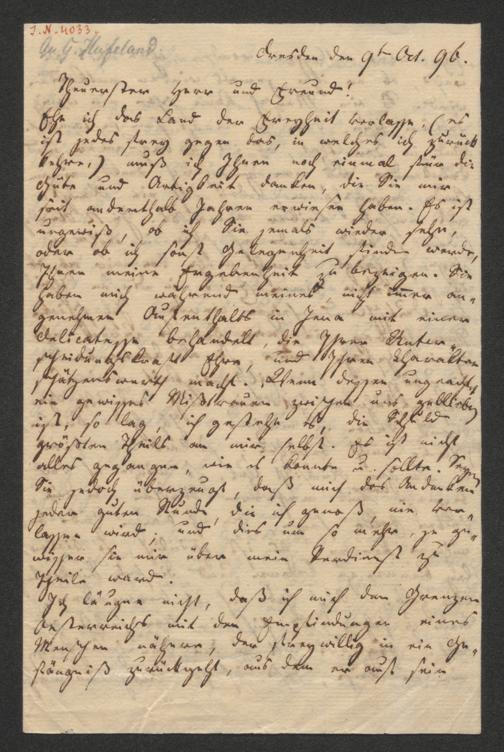 I.N. 4033.
An G. Hufeland.
Dresden den 9t Oct. 96.
Theuerster Herr und Freund!
Ehe ich das Land der Freyheit verlasse, (es
ist jedes frey gegen das, in welches ich zurück
kehre,) muß ich Ihnen noch einmal für die
Güte und Artigkeit danken, die Sie mir
seit anderthalb Jahren erwiesen haben. Es ist
ungewiß, ob ich Sie jemals wieder sehe,
oder ob ich sonst Gelegenheit finden werde,
Ihnen meine Ergebenheit zu bezeigen. Sie
haben mich während meines nicht immer an-
genehmen Aufenthalts in Jena mit einer
Delicatesse behandelt, die Ihrer Unter-
scheidungskraft Ehre, und Ihren Charakter
schätzenswerth macht. Wenn dessen ungeachtet
ein gewisses Mißtrauen zwischen uns geblieben
ist, so lag, ich gestehe es, die Schuld
größten Theils an mir selbst. Es ist nicht
alles gegangen, wie es konnte u. sollte. Seyen
Sie jedoch überzeugt, daß mich das Andenken
jeder guten Stunde, die ich genoß, nie ver-
lassen wird, und dies um so mehr, je ge-
wisser sie mir über mein Verdienst zu
Theile ward.
Ich läugne nicht, daß ich mich den Grenzen
Oesterreichs mit den Empfindungen eines
Menschen nähere, der freywillig in ein Ge-
fängniß zurückgeht, aus dem er auf sein